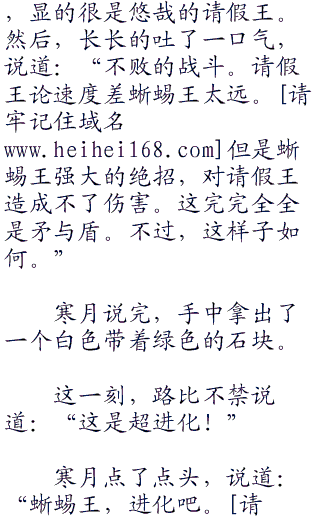 ，显的很是悠哉的请假王。
然后，长长的吐了一口气，
说道：“不败的战斗。请假
王论速度差蜥蜴王太远。[请
牢记住域名
www.heihei168.com]但是蜥
蜴王强大的绝招，对请假王
造成不了伤害。这完完全全
是矛与盾。不过，这样子如
何。”
寒月说完，手中拿出了
一个白色带着绿色的石块。
这一刻，路比不禁说
道：“这是超进化！”
寒月点了点头，说道：
“蜥蜴王，进化吧。[请